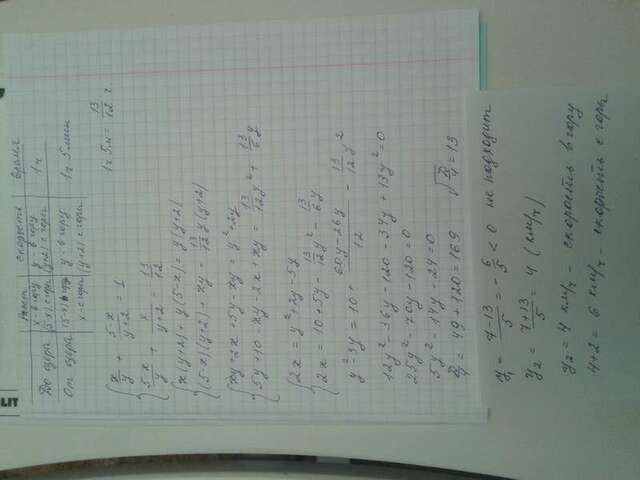 LIT
Мест скорость время
До озера x - в гору y - в гору 1ч
(5-x) с горы (y+2) с горы
От озера (5-x) в гору y - в гору 1ч 5мин
x - с горы (y+2) с горы
x/y + (5-x)/(y+2) = 1 1ч 5м = 13/12 ч
(5-x)/y + x/(y+2) = 13/12
x(y+2) + y(5-x) = y(y+2)
(5-x)(y+2) + xy = 13/12 y(y+2)
xy + 2x + 5y - xy = y² + 2y
5y + 10 - xy - 2x + xy = 13/12 y² + 13/6 y
2x = y² + 2y - 5y
2x = 10 + 5y - 13/12 y² - 13/6 y
y² - 3y = 10 + (60y - 26y)/12 - 13/12 y²
12y² - 36y - 120 - 34y + 13y² = 0
25y² - 70y - 120 = 0
5y² - 14y - 24 = 0
D/4 = 49 + 120 = 169 √(D/4) = 13
y₁ = (7-13)/5 = -6/5 < 0 не подходит
y₂ = (7+13)/5 = 4 (км/ч)
y₂ = 4 км/ч - скорость в гору
4+2 = 6 км/ч - скорость с горы